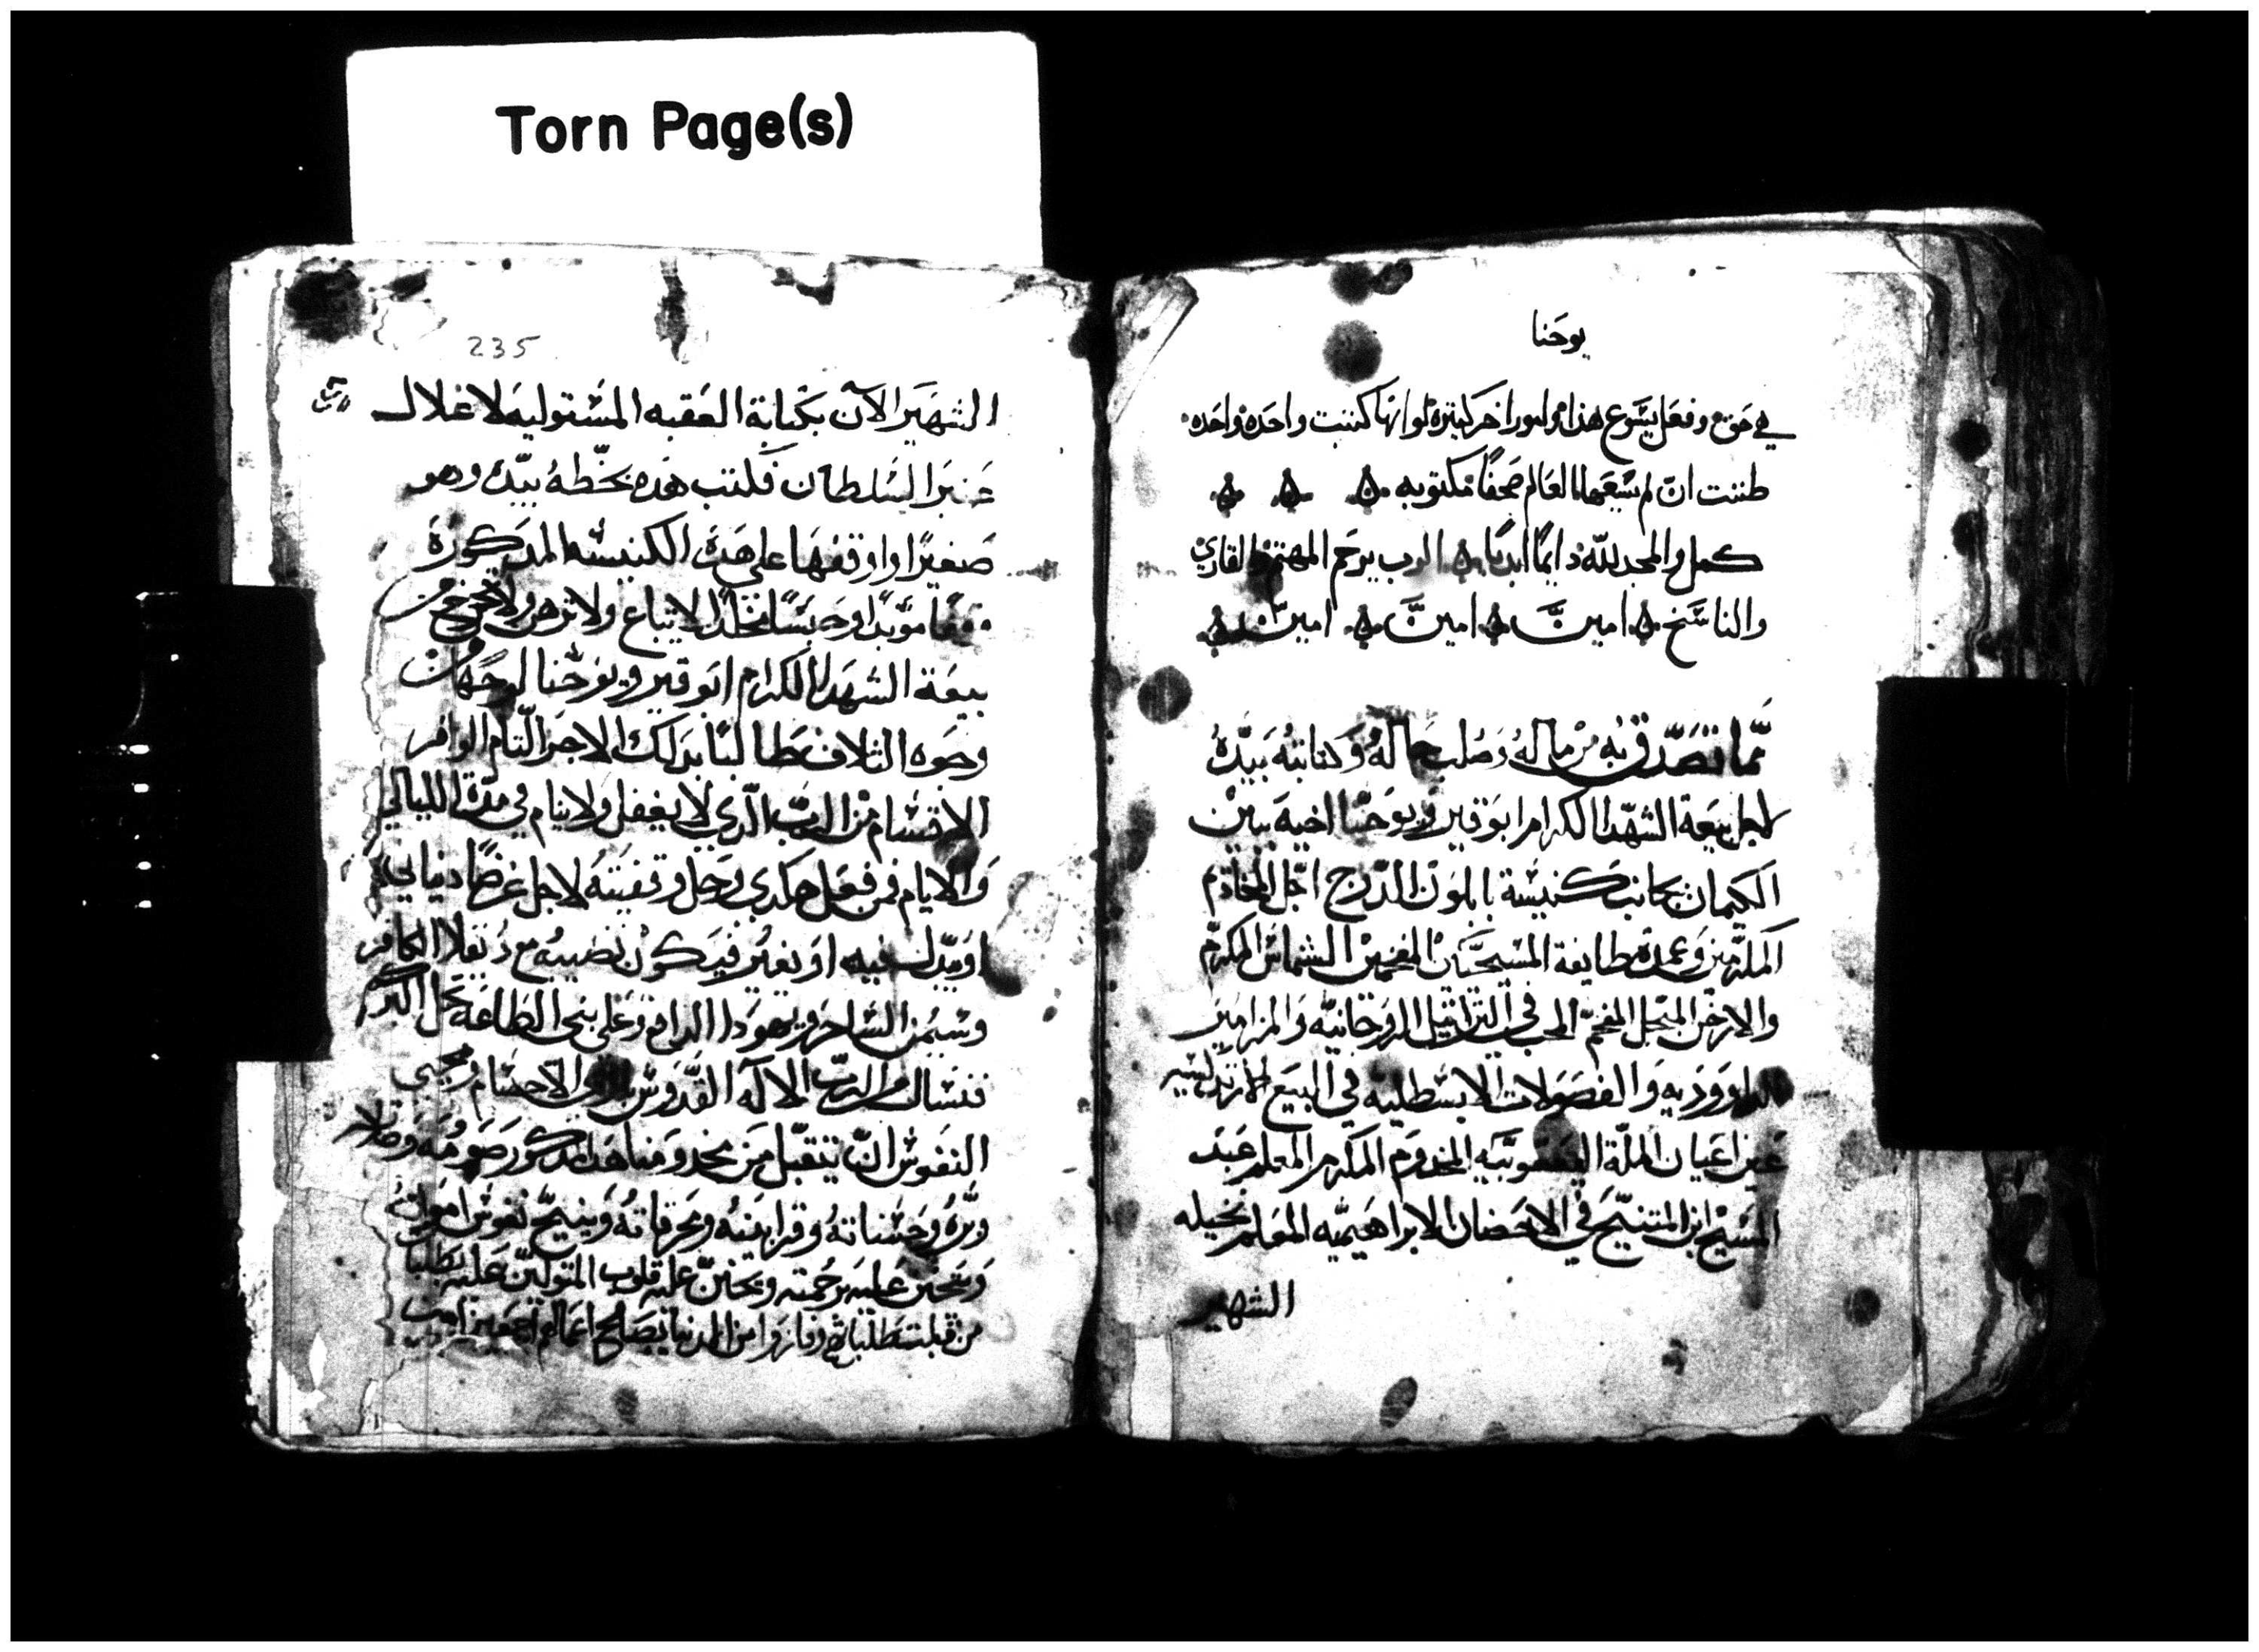 Torn Page(s)
يوحنا
في حق وفعل يسوع هذا وامور اخر كثيره لو انها كتبت واحده واحده
ظننت ان لم يسعها العالم صحفًا مكتوبه
كمل والمجد لله دايمًا ابديًا الرب يرحم المهتم والقاري
والناسخ امين امين امين
ممَّا تصَدّق بهِ مِنْ مالهُ وَصُلب حَالهُ وَكتابتهُ بَيدّهُ
لاجل بيعَة الشهَدا الكرام ابوَقير ويوحَنّا اخيهَ بَين
الكيمان بجانب كنيسَة بابلون الدّرج اجَل المخادَم
المكرّمين وَعمدة طايفة المسيحَيّين المفخمين الشماسْ المكرمّ
والارخن المبجل المفخمّ المحب في التراتيل الروَحانيه وَالمزاميَر
الداوَوديه وَالفصَولات الابسَطليه في البيَع
عَين اعيَان الملّة اليعقَوبيَّه المخدوَم المكرم المعَلم عَبدَ
المسَيح ابن المتنيّح في الاحَضان الابراهَيميه المعَلم نخيله
الشهير
235
الشهَير الآن بكتابة العَقبه المسَتوليه لاغلال
عَنبر السَلطان فكتب هَذه بخَّطهُ بيّده وهو
صَغيرًا واوقفهَا علي هَذه الكنيسه المدَكورَة
وقفًا مؤبدًا وحَبسًا مخلدًا لا يتباع ولا ترهن ولا تخرج من
بيعَة الشهَدا الكرام ابَوقير ويوحَنا لوجَهًا من
وجَوه التلاف طَالبًا بدَلك الاجرَ التّام الوافر
الاقسَام من الربّ الّدي لا يغفل وَلا ينام في مدّة الليالي
وَالايام فمن فعَل هَكدي وَحل وَقفيتهُ لاجل غرضًا دنياني
اوَ يبدّل فيه اوَ يغيّر فيَكون نصَيبهُ مع دُيقلا الكافر
وسَيمن السَاحر ويهوَدا الدافع وَعلي بني الطَاعَة تحل البركه
فنسَال الربّ الالآه القدّوس الاحسَام ومحيي
النفوسْ انّ يتقبّل مَن مخدومنا هَذا المدَكور صَومَهُ وَصَلاته
وَبرّهُ وَحسَناتهُ وَقرابينهُ وَمحرقاتهُ وَينيحّ نفوسْ امواتهُ
وَيتحَنن عَليه برحَمته وَيحَننّ عليه قلوب المتوليّن عَليه بطَلبات
من قبلت طَلباتهم وفازوا من الدنيا بصَالح اعمالهم اجمعَين امين